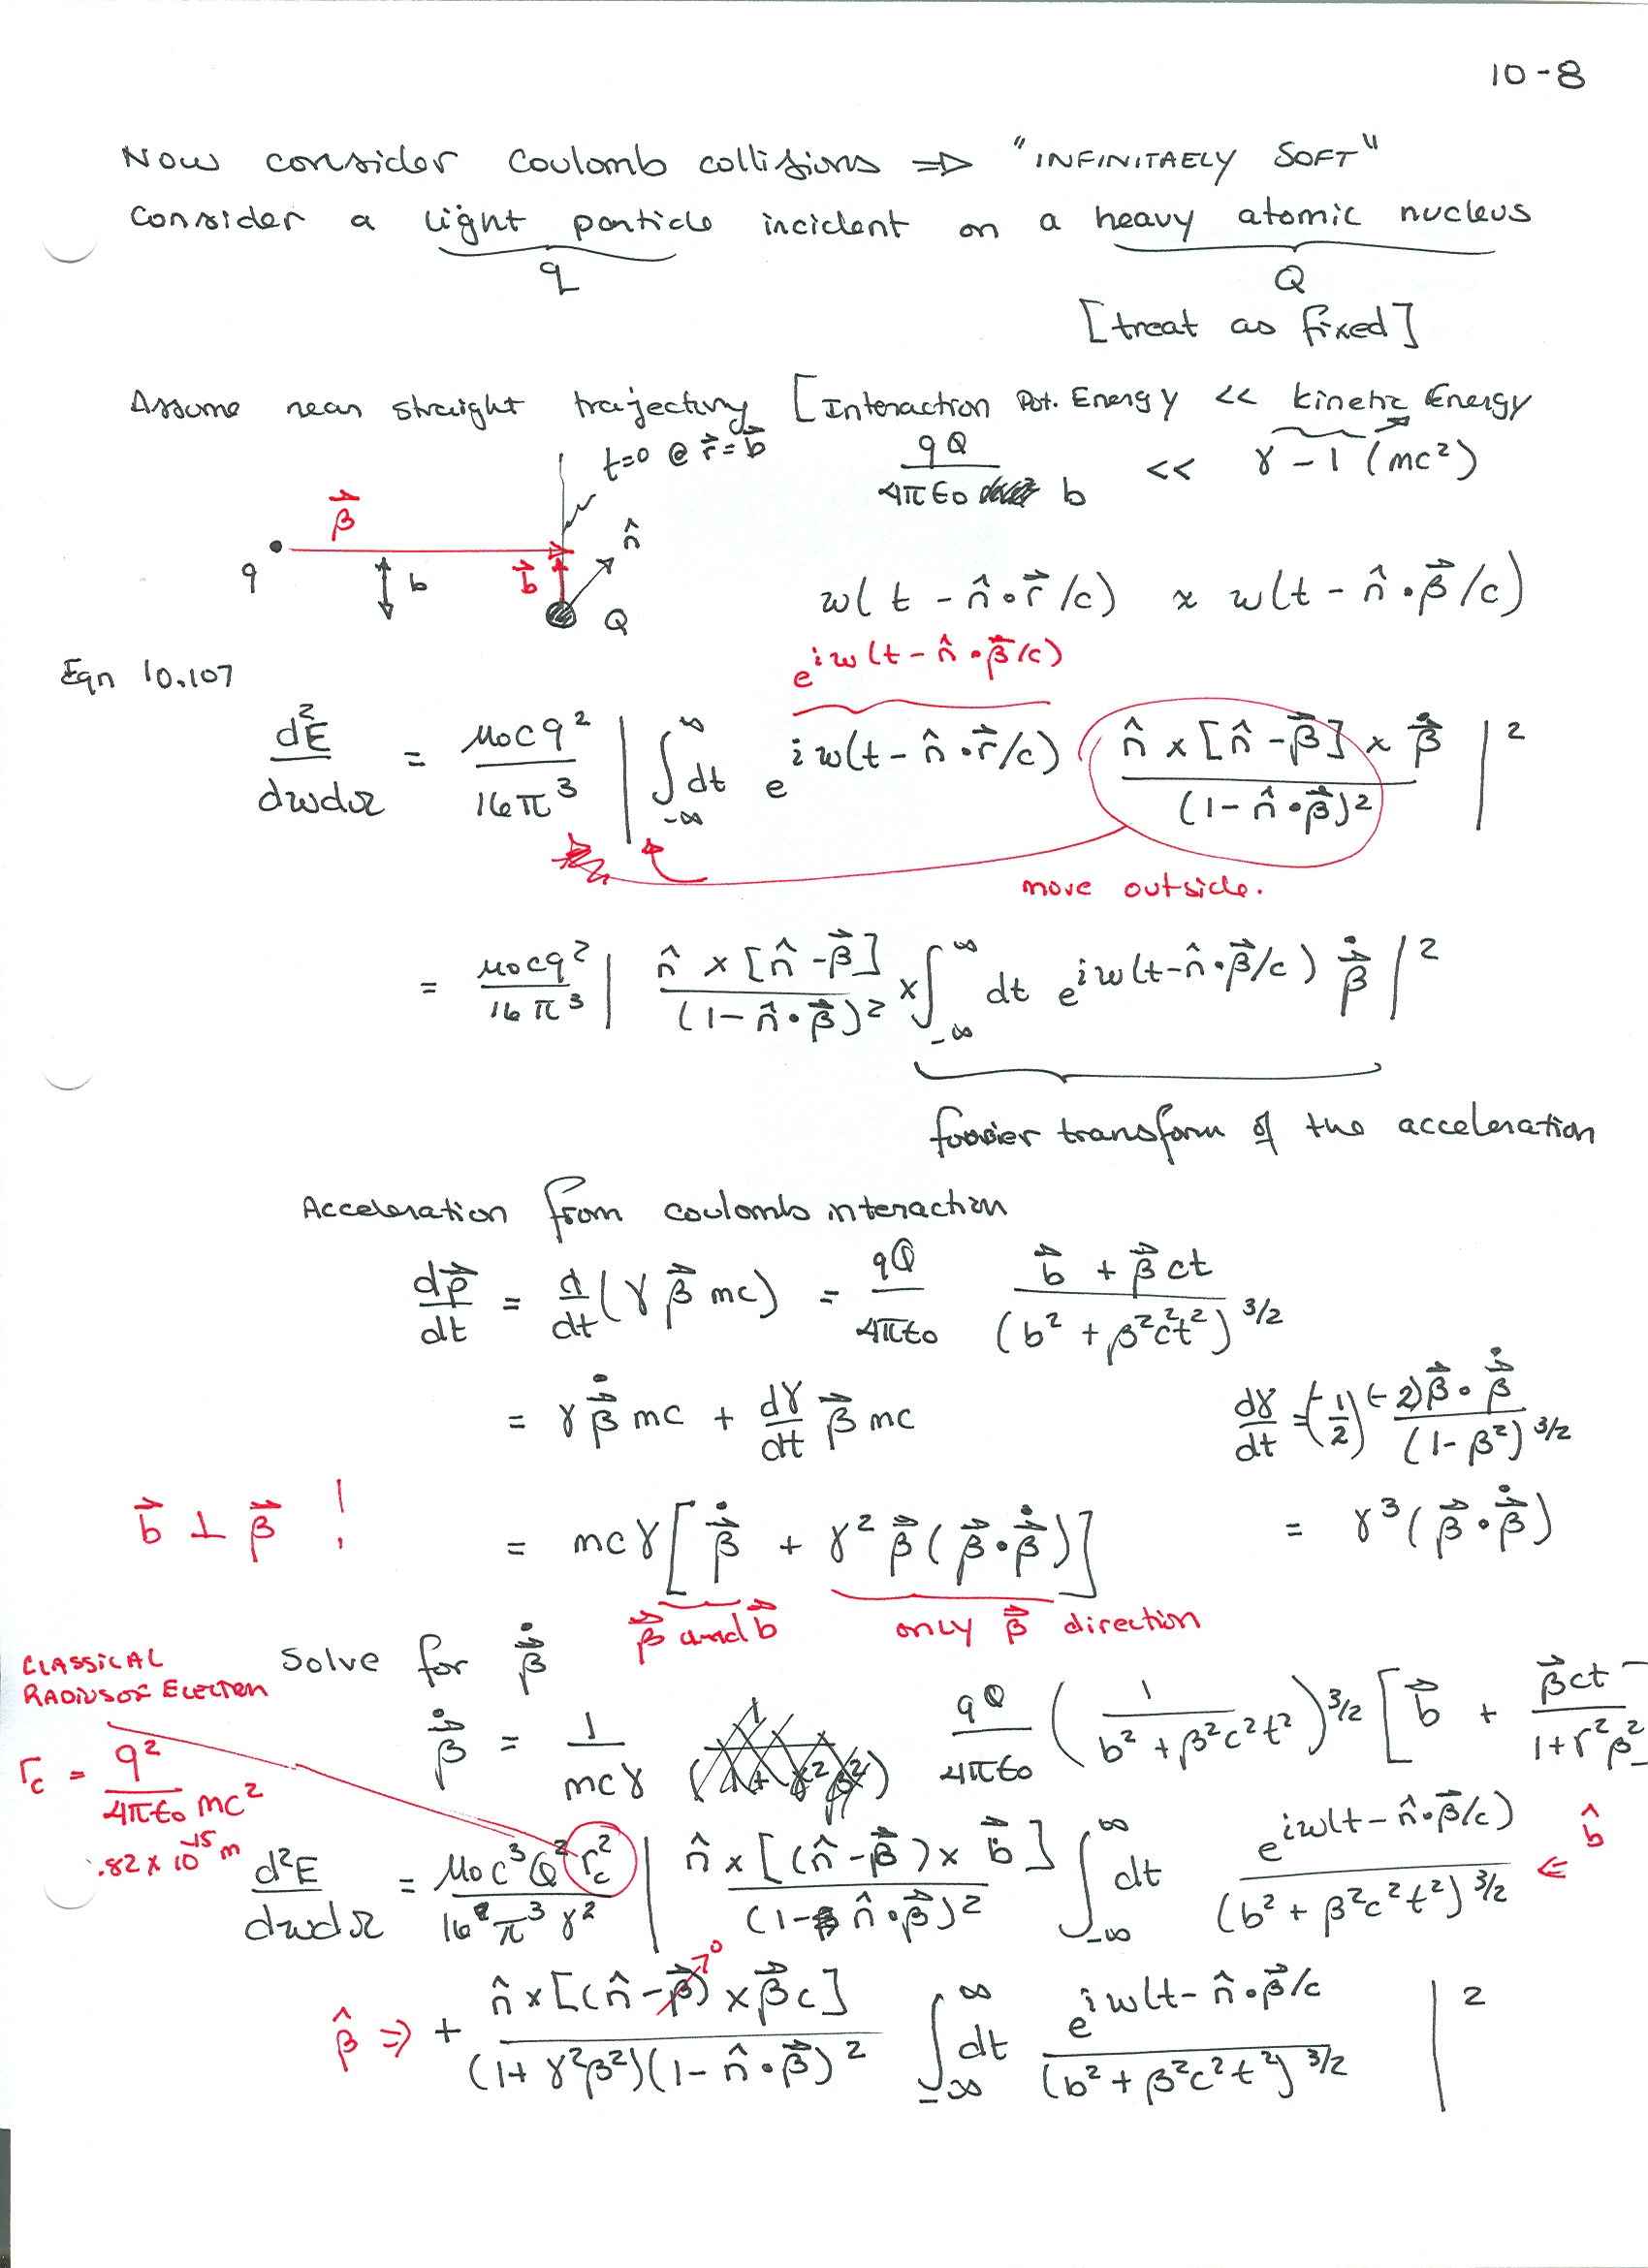 10-8
Now consider Coulomb collisions ⇒ "INFINITAELY SOFT"
Consider a light particle incident on a heavy atomic nucleus
q Q
[treat as fixed]
Assume near straight trajectory [Interaction Pot. Energy << kinetic Energy
t=0 @ r⃗=b⃗ qQ/4πε₀ b << γ-1 (mc²)
β⃗
q b b⃗ n̂ Q
w(t - n̂·r⃗/c) ≈ w(t - n̂·β⃗/c)
e^{iw(t - n̂·β⃗/c)}
Eqn 10.107
d²E/dwdΩ = μ₀cq²/16π³ | ∫_{-∞}^{∞} dt e^{iw(t - n̂·r⃗/c)} n̂ × [n̂ - β⃗] × β⃗̇ / (1 - n̂·β⃗)² |²
move outside.
= μ₀cq²/16π³ | n̂ × [n̂ - β⃗] / (1 - n̂·β⃗)² × ∫_{-∞}^{∞} dt e^{iw(t - n̂·β⃗/c)} β⃗̇ |²
fourier transform of the acceleration
Acceleration from coulomb interaction
dp⃗/dt = d/dt (γ β⃗ mc) = qQ/4πε₀ (b⃗ + β⃗ct) / (b² + β²c²t²)^{3/2}
= γ β⃗̇ mc + dγ/dt β⃗ mc dγ/dt = (-1/2) (-2)β⃗·β⃗̇ / (1-β²)^{3/2}
b⃗ ⊥ β⃗ ! = mcγ [ β⃗̇ + γ² β⃗ (β⃗·β⃗̇) ] = γ³ (β⃗·β⃗̇)
β⃗ and b⃗ only β⃗ direction
CLASSICAL
RADIUS OF ELECTRN
Solve for β⃗̇
β⃗̇ = 1/mcγ qQ/4πε₀ (1/(b² + β²c²t²))^{3/2} [ b⃗ + β⃗ct/1+γ²β²
r_c = q²/4πε₀ mc²
.82 x 10^{-15} m
d²E/dwdΩ = μ₀c³Q²r_c²/16π³γ² | n̂ × [(n̂ - β⃗) × b⃗] / (1 - n̂·β⃗)² ∫_{-∞}^{∞} dt e^{iw(t - n̂·β⃗/c)} / (b² + β²c²t²)^{3/2} ⇐ b̂
β̂ ⇒ + n̂ × [(n̂ - β⃗) × β⃗c] / (1 + γ²β²)(1 - n̂·β⃗)² ∫_{-∞}^{∞} dt e^{iw(t - n̂·β⃗/c} / (b² + β²c²t²)^{3/2} |²
→0